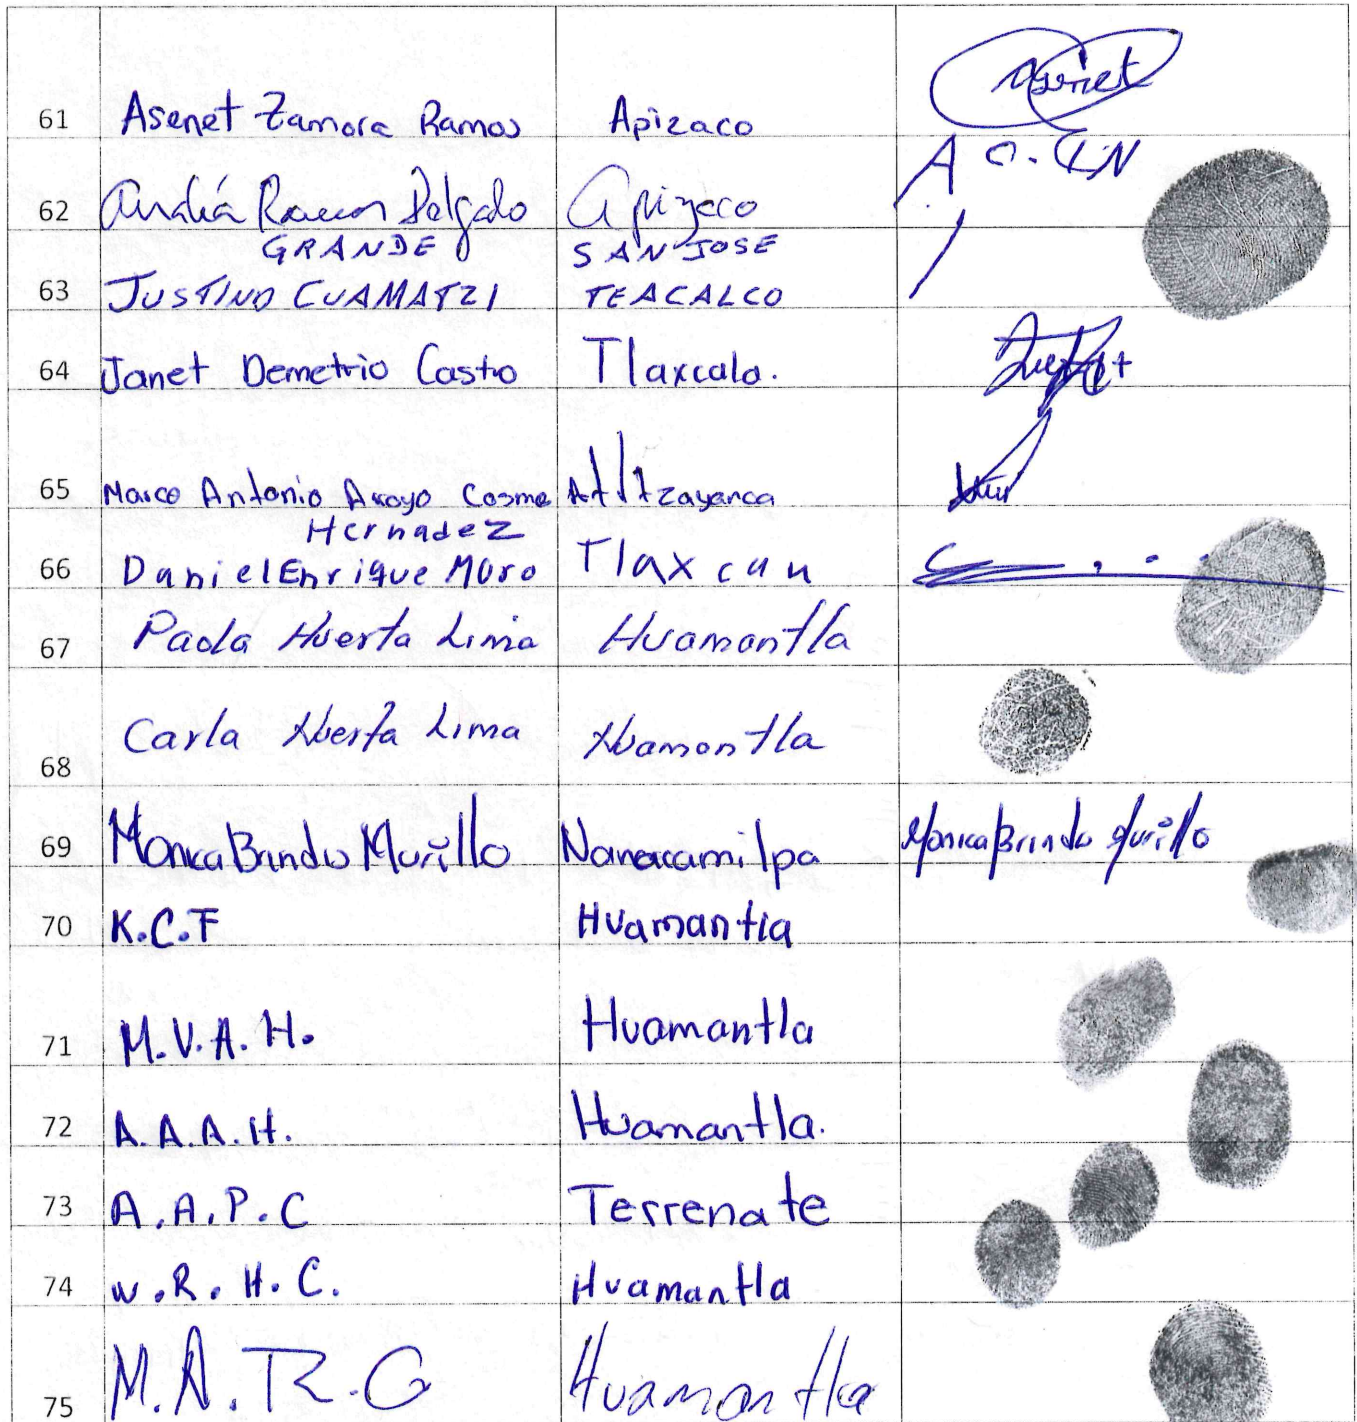 Asenet
61 Asenet Zamora Ramos Apizaco
A
62 Delgado Apizaco
GRANDE SAN JOSE
63 JUSTINO CUAMATZI TEACALCO
64 Janet Demetrio Castro Tlaxcala.
65 Marco Antonio Arroyo Cosme Atltzayanca
Hernadez
66 Daniel Enrique Muro Tlaxcan
67 Paola Huerta Lima Huamantla
68 Carla Huerta Lima Huamantla
69 Monica Brindu Murillo Nanacamilpa Monica Brindu Murillo
70 K.C.F Huamantla
71 M.V.A.H. Huamantla
72 A.A.A.H. Huamantla.
73 A.A.P.C Terrenate
74 W.R.H.C. Huamantla
75 M.A.R.G Huamantla